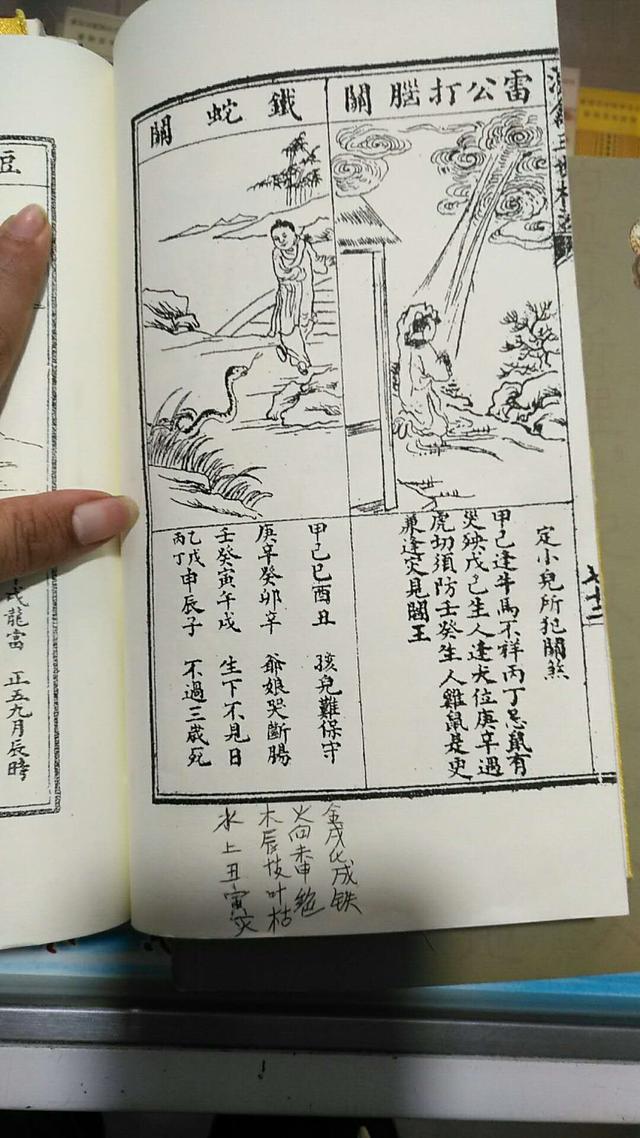 雷公打腦關
定小兒所犯關煞
甲己逢牛馬不祥丙丁忌鼠有
災殃戊己生人逢犬位庚辛遇
虎切須防壬癸生人雞鼠是更
兼逢灾見閻王
鐵蛇關
甲己巳酉丑 孩兒難保守
庚辛癸卯辛 爺娘哭斷腸
壬癸寅午戌 生下不見日
乙戊丙丁申辰子 不過三歲死
金戌化成铁
火向未申絕
木辰枝叶枯
水上丑寅灾
戌龍當 正五九月辰時